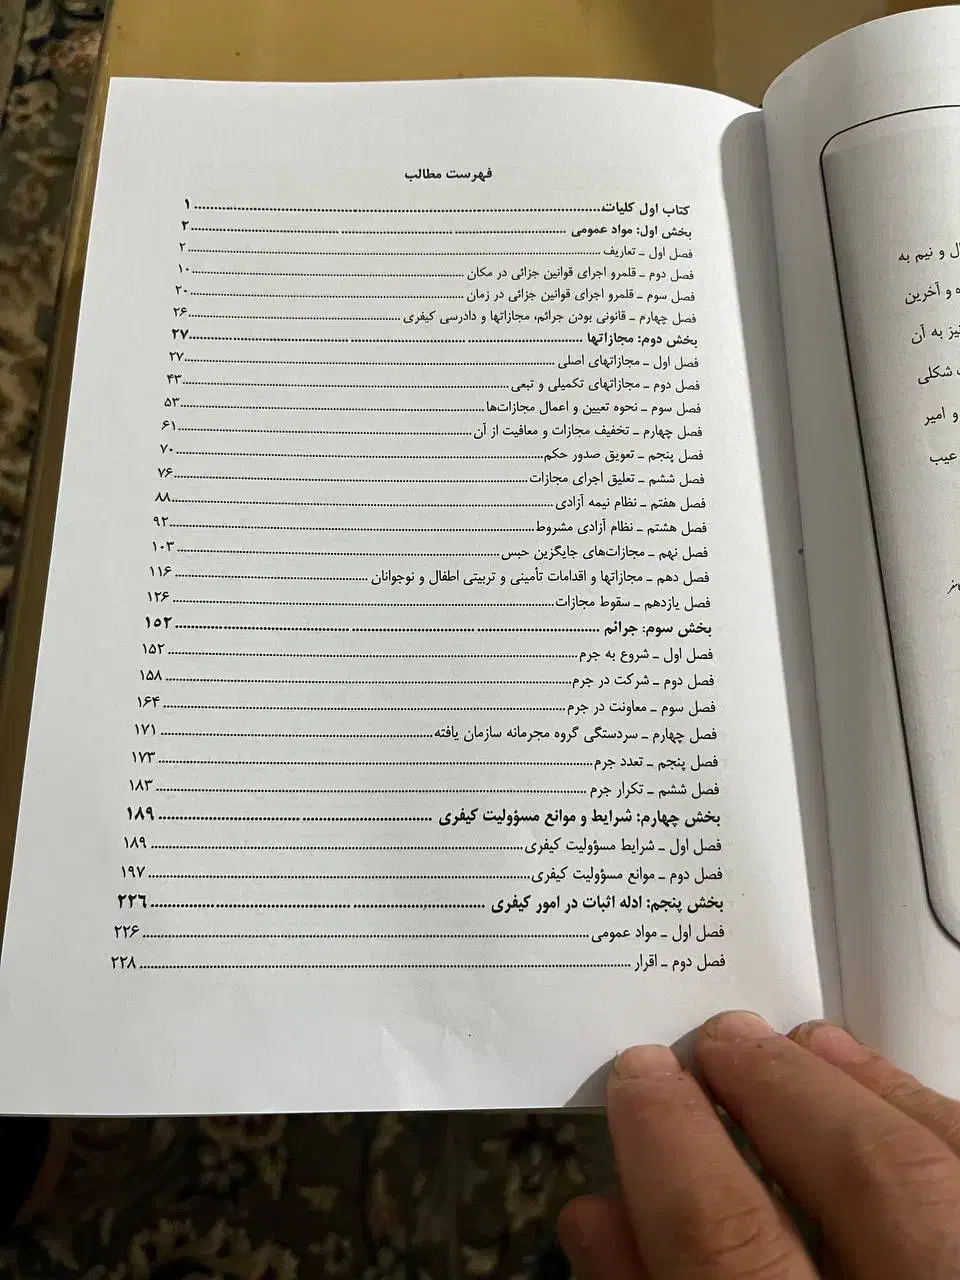 فهرست مطالب
کتاب اول کلیات ۱
بخش اول: مواد عمومی ۲
فصل اول ـ تعاریف ۲
فصل دوم ـ قلمرو اجرای قوانین جزائی در مکان ۱۰
فصل سوم ـ قلمرو اجرای قوانین جزائی در زمان ۲۰
فصل چهارم ـ قانونی بودن جرائم، مجازاتها و دادرسی کیفری ۲۶
بخش دوم: مجازاتها ۲۷
فصل اول ـ مجازاتهای اصلی ۲۷
فصل دوم ـ مجازاتهای تکمیلی و تبعی ۴۳
فصل سوم ـ نحوه تعیین و اعمال مجازات‌ها ۵۳
فصل چهارم ـ تخفیف مجازات و معافیت از آن ۶۱
فصل پنجم ـ تعویق صدور حکم ۷۰
فصل ششم ـ تعلیق اجرای مجازات ۷۶
فصل هفتم ـ نظام نیمه آزادی ۸۸
فصل هشتم ـ نظام آزادی مشروط ۹۲
فصل نهم ـ مجازات‌های جایگزین حبس ۱۰۳
فصل دهم ـ مجازاتها و اقدامات تأمینی و تربیتی اطفال و نوجوانان ۱۱۶
فصل یازدهم ـ سقوط مجازات ۱۲۶
بخش سوم: جرائم ۱۵۲
فصل اول ـ شروع به جرم ۱۵۲
فصل دوم ـ شرکت در جرم ۱۵۸
فصل سوم ـ معاونت در جرم ۱۶۴
فصل چهارم ـ سردستگی گروه مجرمانه سازمان یافته ۱۷۱
فصل پنجم ـ تعدد جرم ۱۷۳
فصل ششم ـ تکرار جرم ۱۸۳
بخش چهارم: شرایط و موانع مسؤولیت کیفری ۱۸۹
فصل اول ـ شرایط مسؤولیت کیفری ۱۸۹
فصل دوم ـ موانع مسؤولیت کیفری ۱۹۷
بخش پنجم: ادله اثبات در امور کیفری ۲۲٦
فصل اول ـ مواد عمومی ۲۲۶
فصل دوم ـ اقرار ۲۲۸
و نیم به
و آخرین
نیز به آن
شکلی
و امیر
عیب